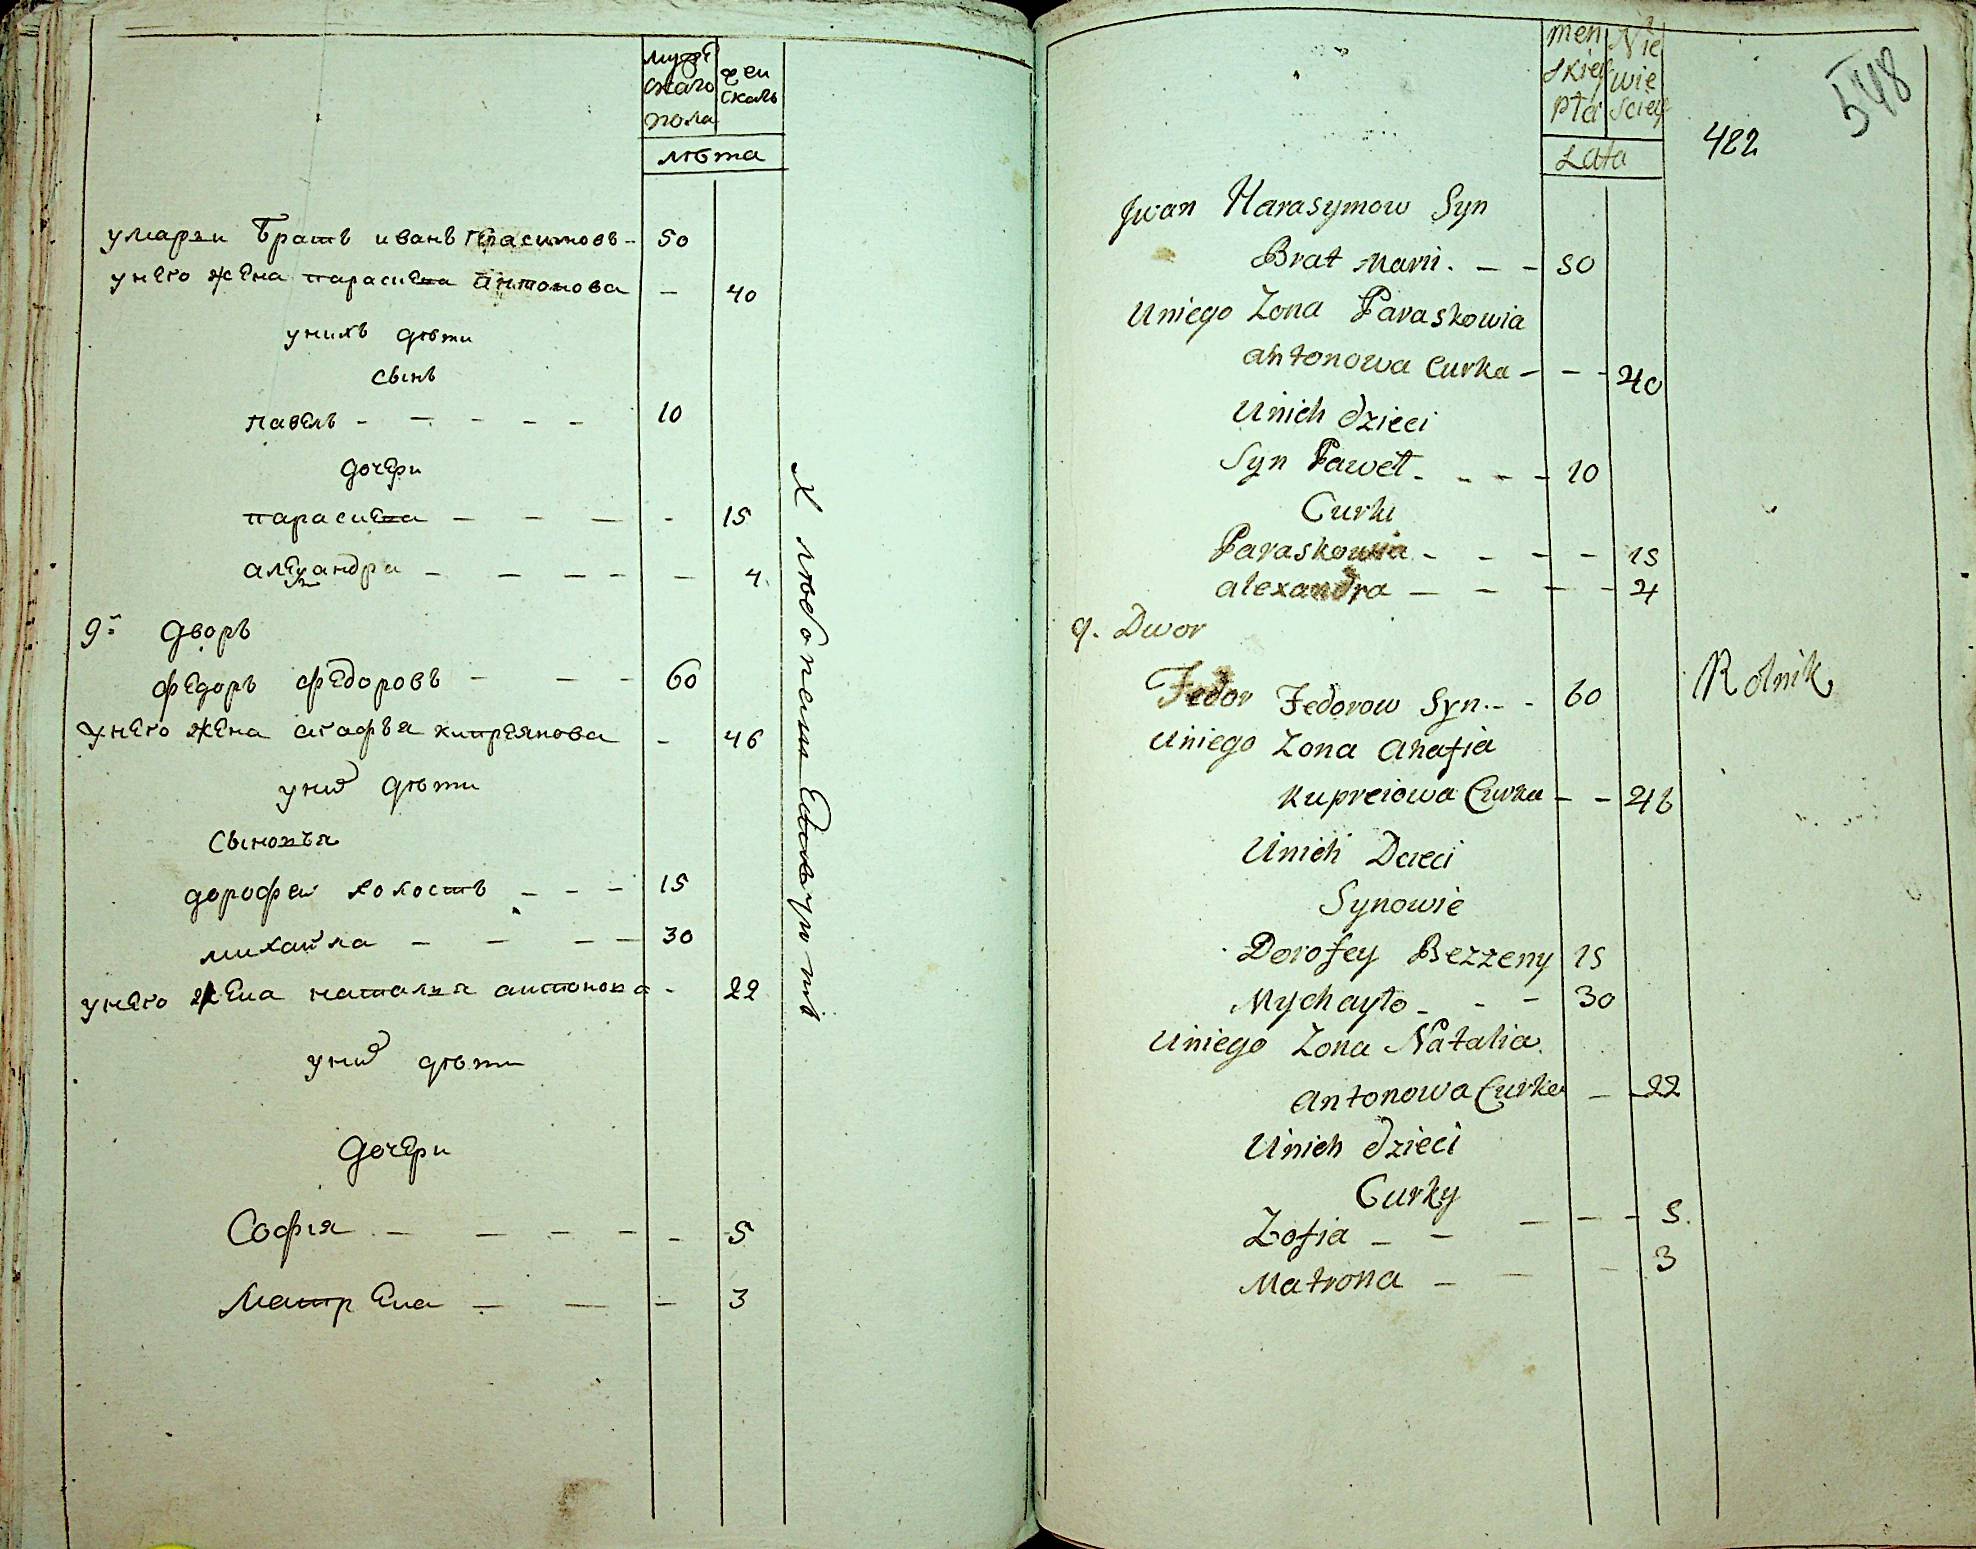 мужескаго пола
женскаго
лѣта
у марiи братъ иванъ герасимовъ - 50
у него жена параскева антонова - 40
у нихъ дѣти
сынъ
павелъ - - - - - 10
дочери
параскева - - - - 15
александра - - - - - 4
9й дворъ
федоръ федоровъ - - - 60
у него жена агафья кипреянова - 46
у них дѣти
сыновья
дорофей холостъ - - - 15
михайла - - - - 30
у него жена наталья антонова - 22
у них дѣти
дочери
Софiя - - - - - 5
Матрена - - - 3
Хлѣбопашецъ
men skiey płci
Nie wie sciey
Lata
422
548
Jwan Harasymow Syn
Brat Marii. - - 50
Uniego Zona Paraskowia
antonowa Curka - - - 40
Unich dzieci
Syn Paweł - - - - 10
Curki
Paraskowia - - - - 15
alexandra - - - - 4
9. Dwor
Fedor Fedorow Syn - - 60 Rolnik
Uniego Zona ahafia
Kupreiowa Curka - - 46
Unich Dzieci
Synowie
Dorofey Bezzeny 15
Mychayło - - - 30
Uniego Zona Natalia
antonowa Curka - - 22
Unich dzieci
Curky
Zofia - - - - - 5.
Matrona - - - 3